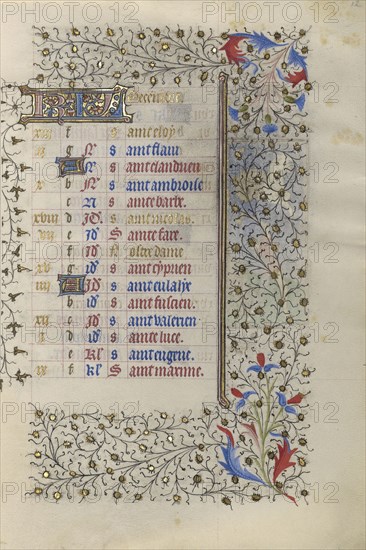 12
KL Decembre
xiii f s aint eloy
ii g N s aint flaui
A N s aint clanduen
x b N s aint ambroise
c N s aincte barbe
xviii d s aint nicolas
vii e Id S aincte fare
f id N ostre dame
xv g id s aint cyprien
iiii A Id s aint eulalye
b id s aint fuscien
xii c Id s aint valerien
i d id s aincte luce
e kl s aint eugene
ix f kl S aint maxime